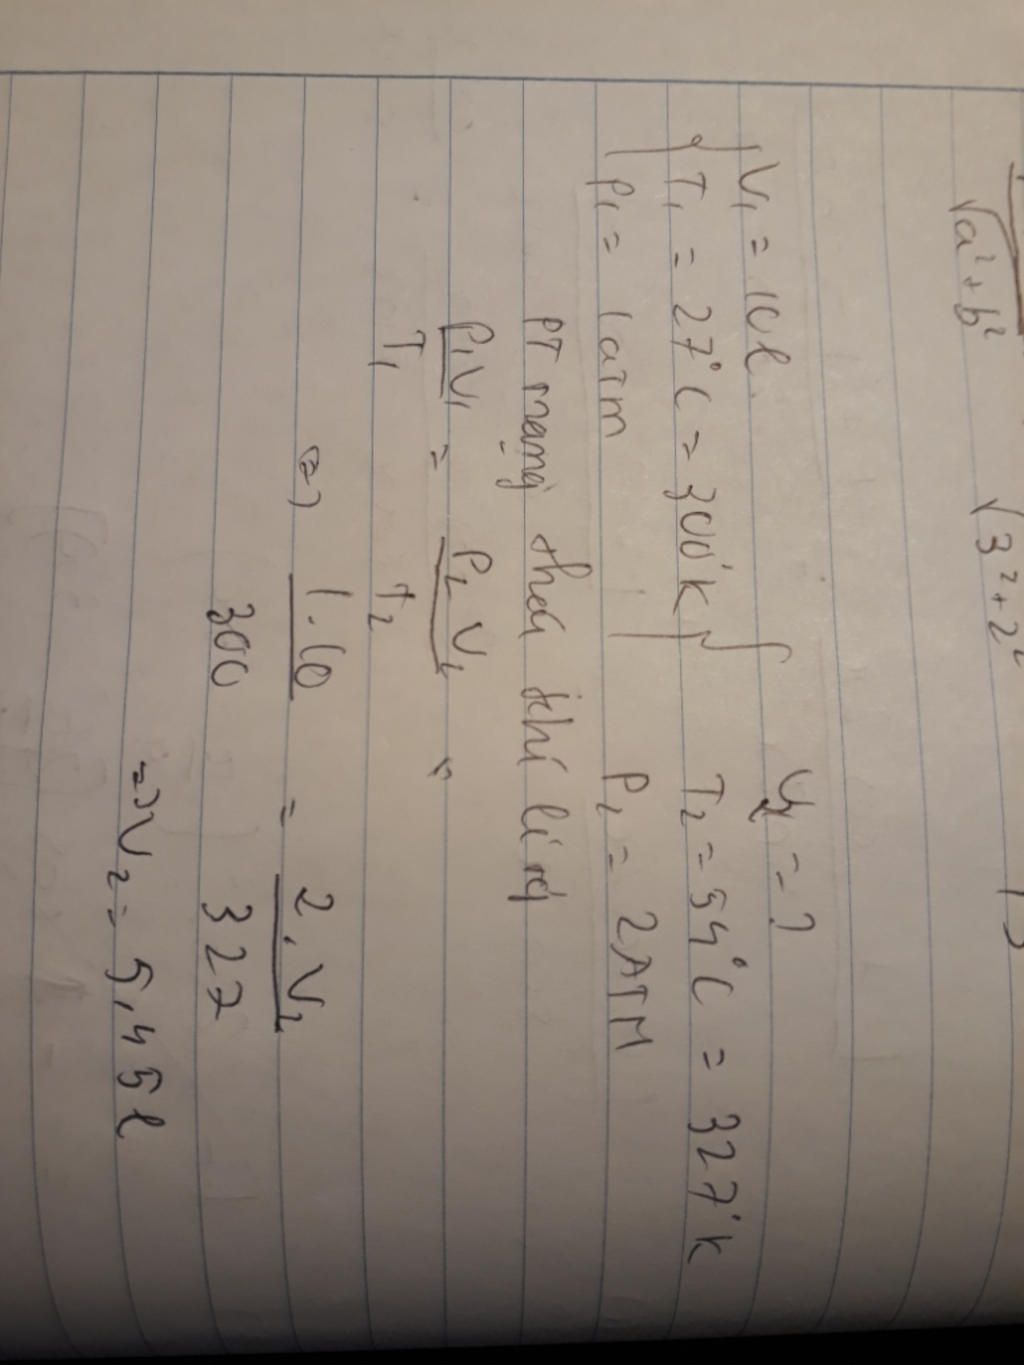 √a²+b² √3²+2²
V₁ = 10l V₂ = ?
T₁ = 27°C = 300°K T₂ = 54°C = 327°K
P₁ = 1atm P₂ = 2ATM
PT trạng thái khí lí tưởng
P₁V₁ / T₁ = P₂V₂ / T₂
(=) 1.10 / 300 = 2.V₂ / 327
=) V₂ = 5,45l